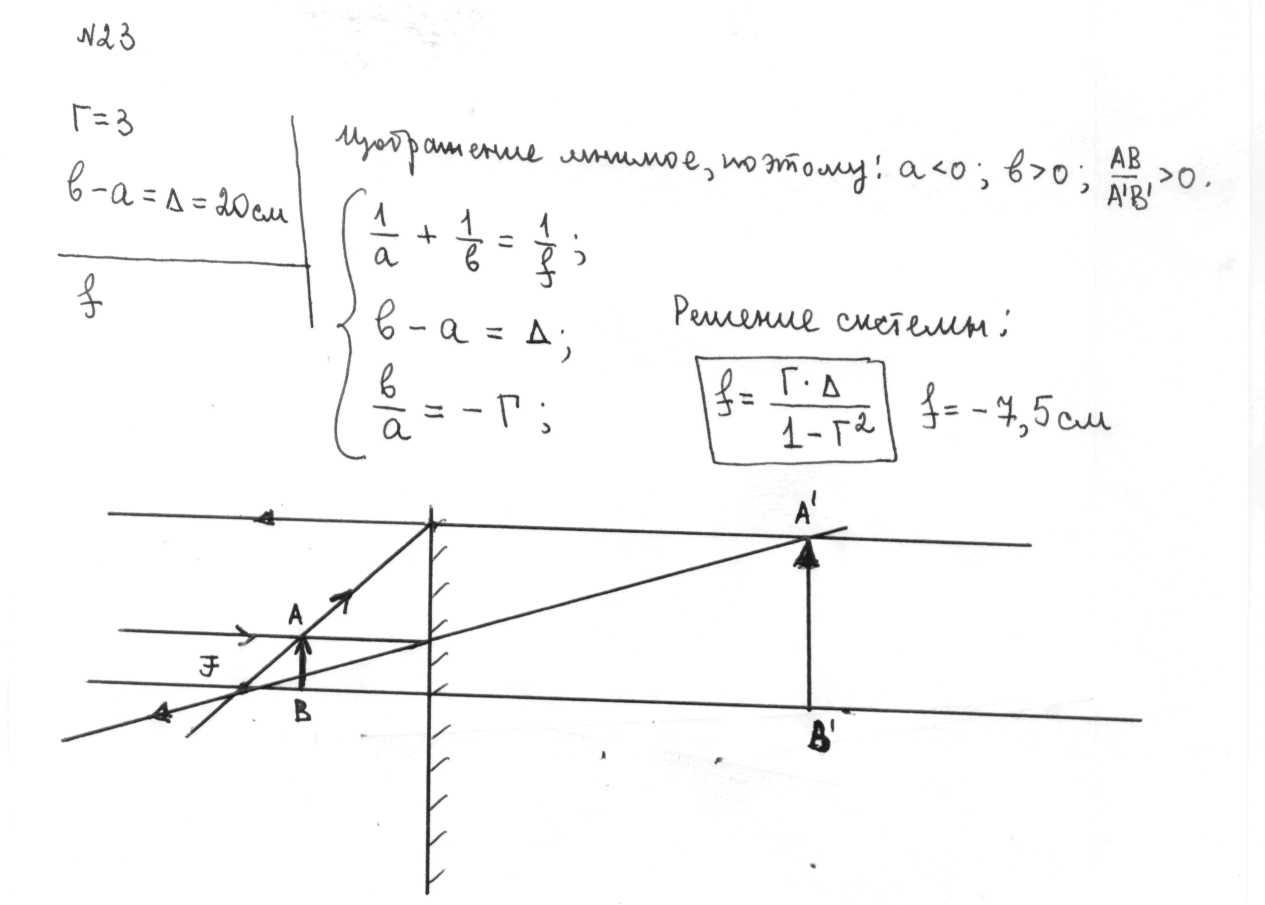 №23
Г=3
в-а=Δ=20см
f
Изображение мнимое, поэтому: а<0; в>0; AB/A'B'>0.
1/а + 1/в = 1/f;
в - а = Δ;
в/а = - Г;
Решение системы:
f = Г·Δ/(1-Г²) f = -7,5см
A'
A
F
B
B'